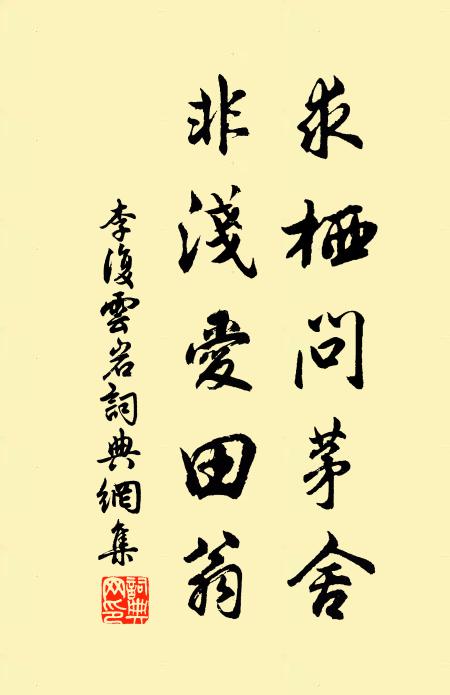 求栖問茅舍
非淺愛田翁
李復雲岩詞典網集
詞典網印